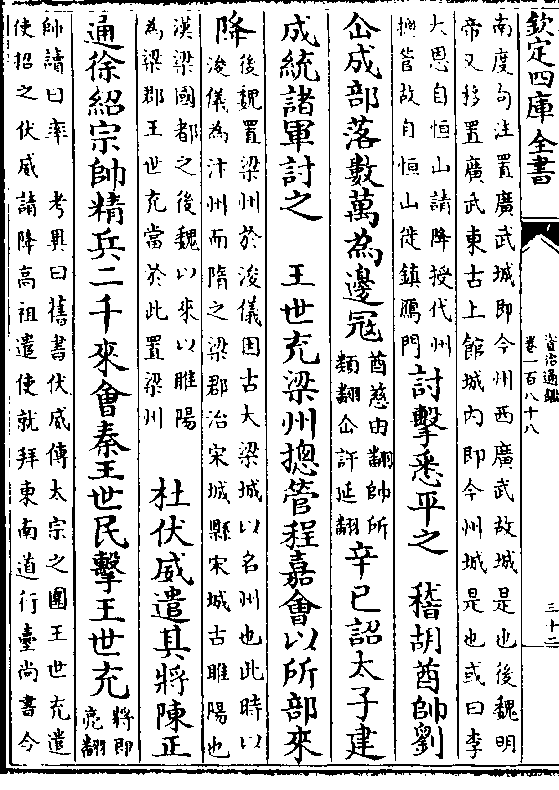 欽定四庫全書
資治通鑑
卷一百八十八
三十二
南度句注置廣武城即今州西廣武故城是也後魏明
帝又移置廣武東古上館城內即今州城是也或曰李
大恩自恒山請降授代州
摠管故自恒山徙鎮鴈門
討擊悉平之　稽胡酋帥劉
仚成部落數萬為邊宼
酋慈由翻帥所
類翻仚許延翻
辛巳詔太子建
成統諸軍討之　王世充梁州摠管程嘉會以所部來
降
後魏置梁州於浚儀因古大梁城以名州也此時以
浚儀為汴州而隋之梁郡治宋城縣宋城古睢陽也
漢梁國都之後魏以來以睢陽
為梁郡王世充當於此置梁州
杜伏威遣其將陳正
通徐紹宗帥精兵二千來會秦王世民擊王世充
將即
亮翻
帥讀曰率　考異曰舊書伏威傳太宗之圍王世充遣
使招之伏威請降高祖遣使就拜東南道行臺尚書今